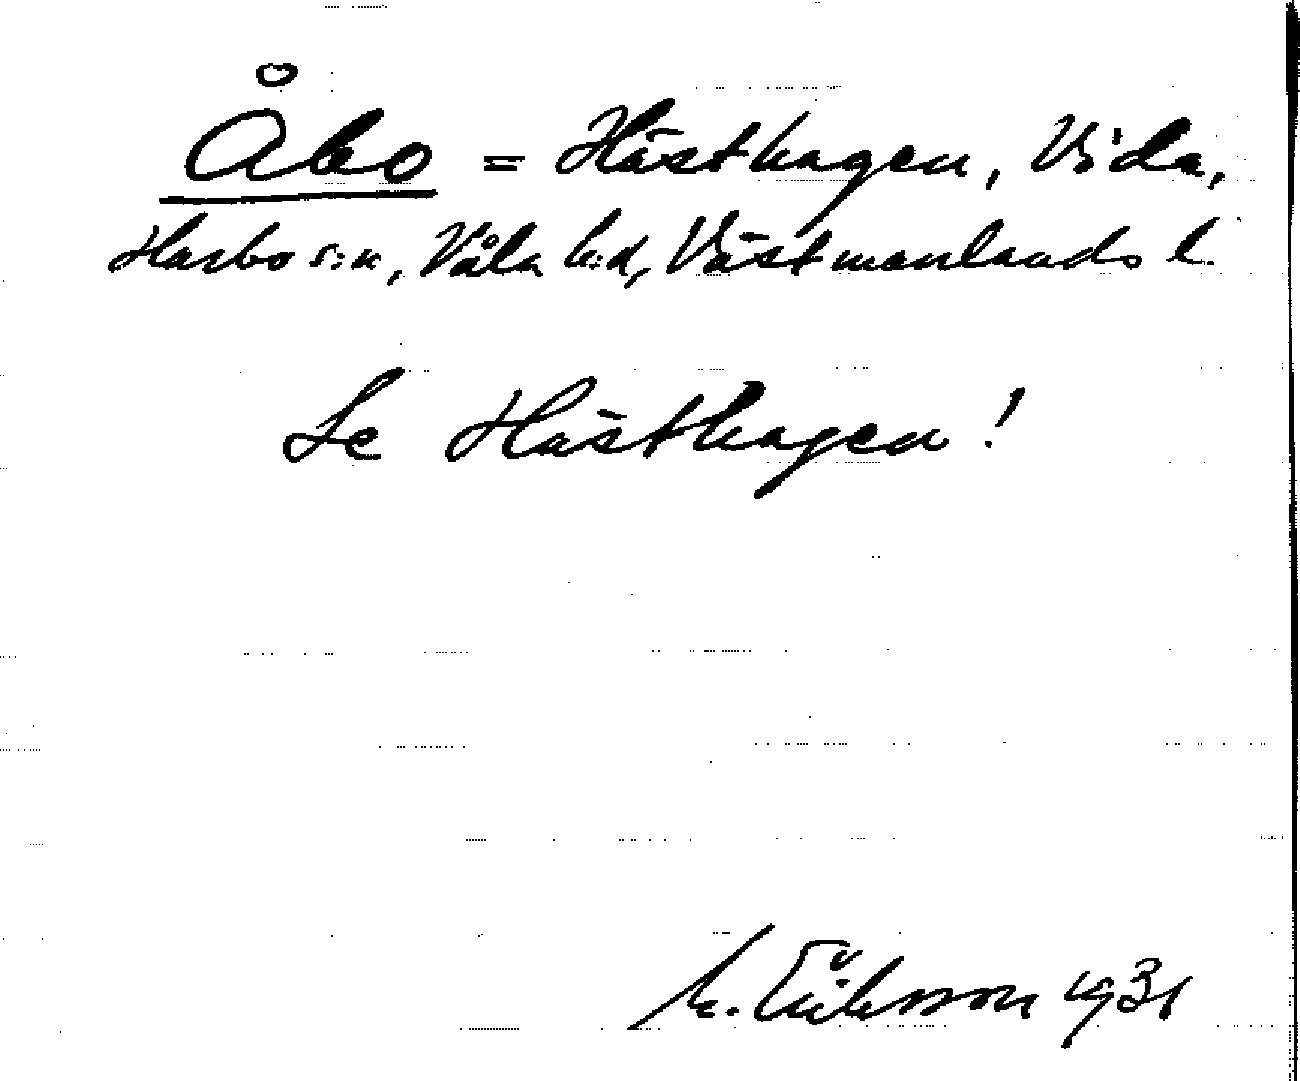 Åbo = Hästhagen, Vida,
Harbo s:n, Våla h:d, Västmanlands l.
Se Hästhagen!
M. Eriksson 1931